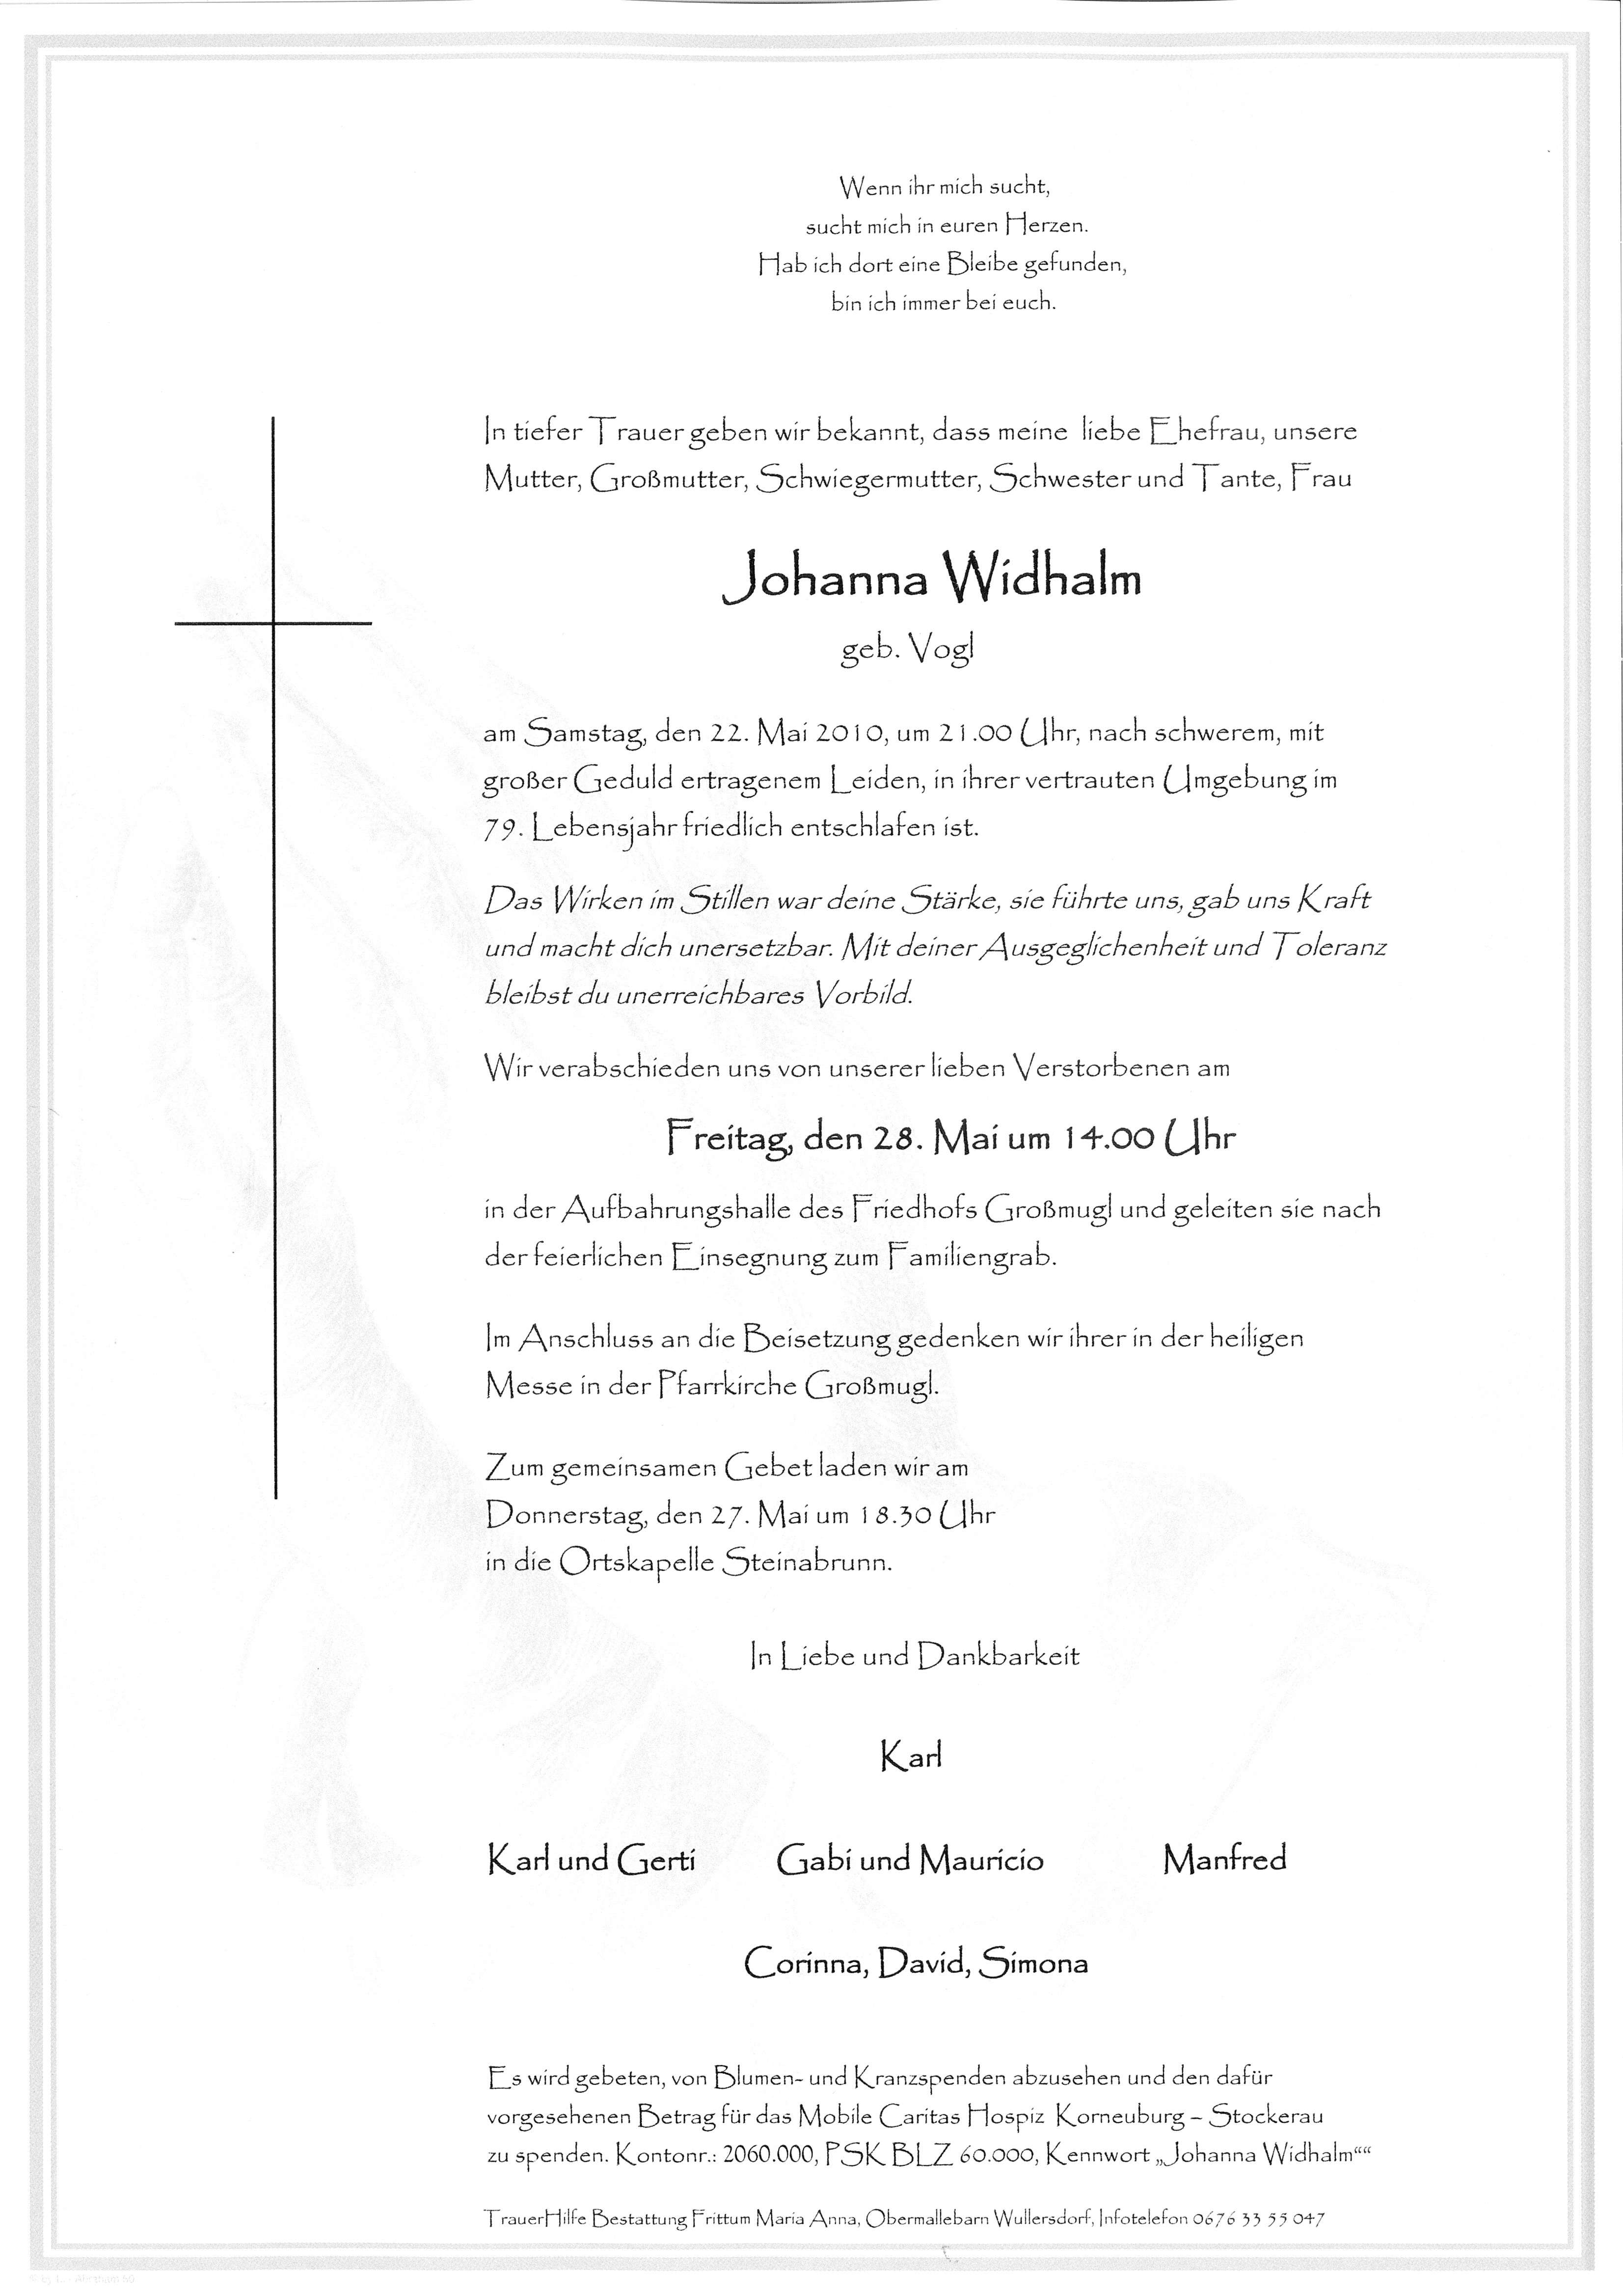 Wenn ihr mich sucht,
sucht mich in euren Herzen.
Hab ich dort eine Bleibe gefunden,
bin ich immer bei euch.
In tiefer Trauer geben wir bekannt, dass meine liebe Ehefrau, unsere
Mutter, Großmutter, Schwiegermutter, Schwester und Tante, Frau
Johanna Widhalm
geb. Vogl
am Samstag, den 22. Mai 2010, um 21.00 Uhr, nach schwerem, mit
großer Geduld ertragenem Leiden, in ihrer vertrauten Umgebung im
79. Lebensjahr friedlich entschlafen ist.
Das Wirken im Stillen war deine Stärke, sie führte uns, gab uns Kraft
und macht dich unersetzbar. Mit deiner Ausgeglichenheit und Toleranz
bleibst du unerreichbares Vorbild.
Wir verabschieden uns von unserer lieben Verstorbenen am
Freitag, den 28. Mai um 14.00 Uhr
in der Aufbahrungshalle des Friedhofs Großmugl und geleiten sie nach
der feierlichen Einsegnung zum Familiengrab.
Im Anschluss an die Beisetzung gedenken wir ihrer in der heiligen
Messe in der Pfarrkirche Großmugl.
Zum gemeinsamen Gebet laden wir am
Donnerstag, den 27. Mai um 18.30 Uhr
in die Ortskapelle Steinabrunn.
In Liebe und Dankbarkeit
Karl
Karl und Gerti Gabi und Mauricio Manfred
Corinna, David, Simona
Es wird gebeten, von Blumen- und Kranzspenden abzusehen und den dafür
vorgesehenen Betrag für das Mobile Caritas Hospiz Korneuburg – Stockerau
zu spenden. Kontonr.: 2060.000, PSK BLZ 60.000, Kennwort „Johanna Widhalm““
TrauerHilfe Bestattung Frittum Maria Anna, Obermallebarn Wullersdorf, Infotelefon 0676 33 55 047